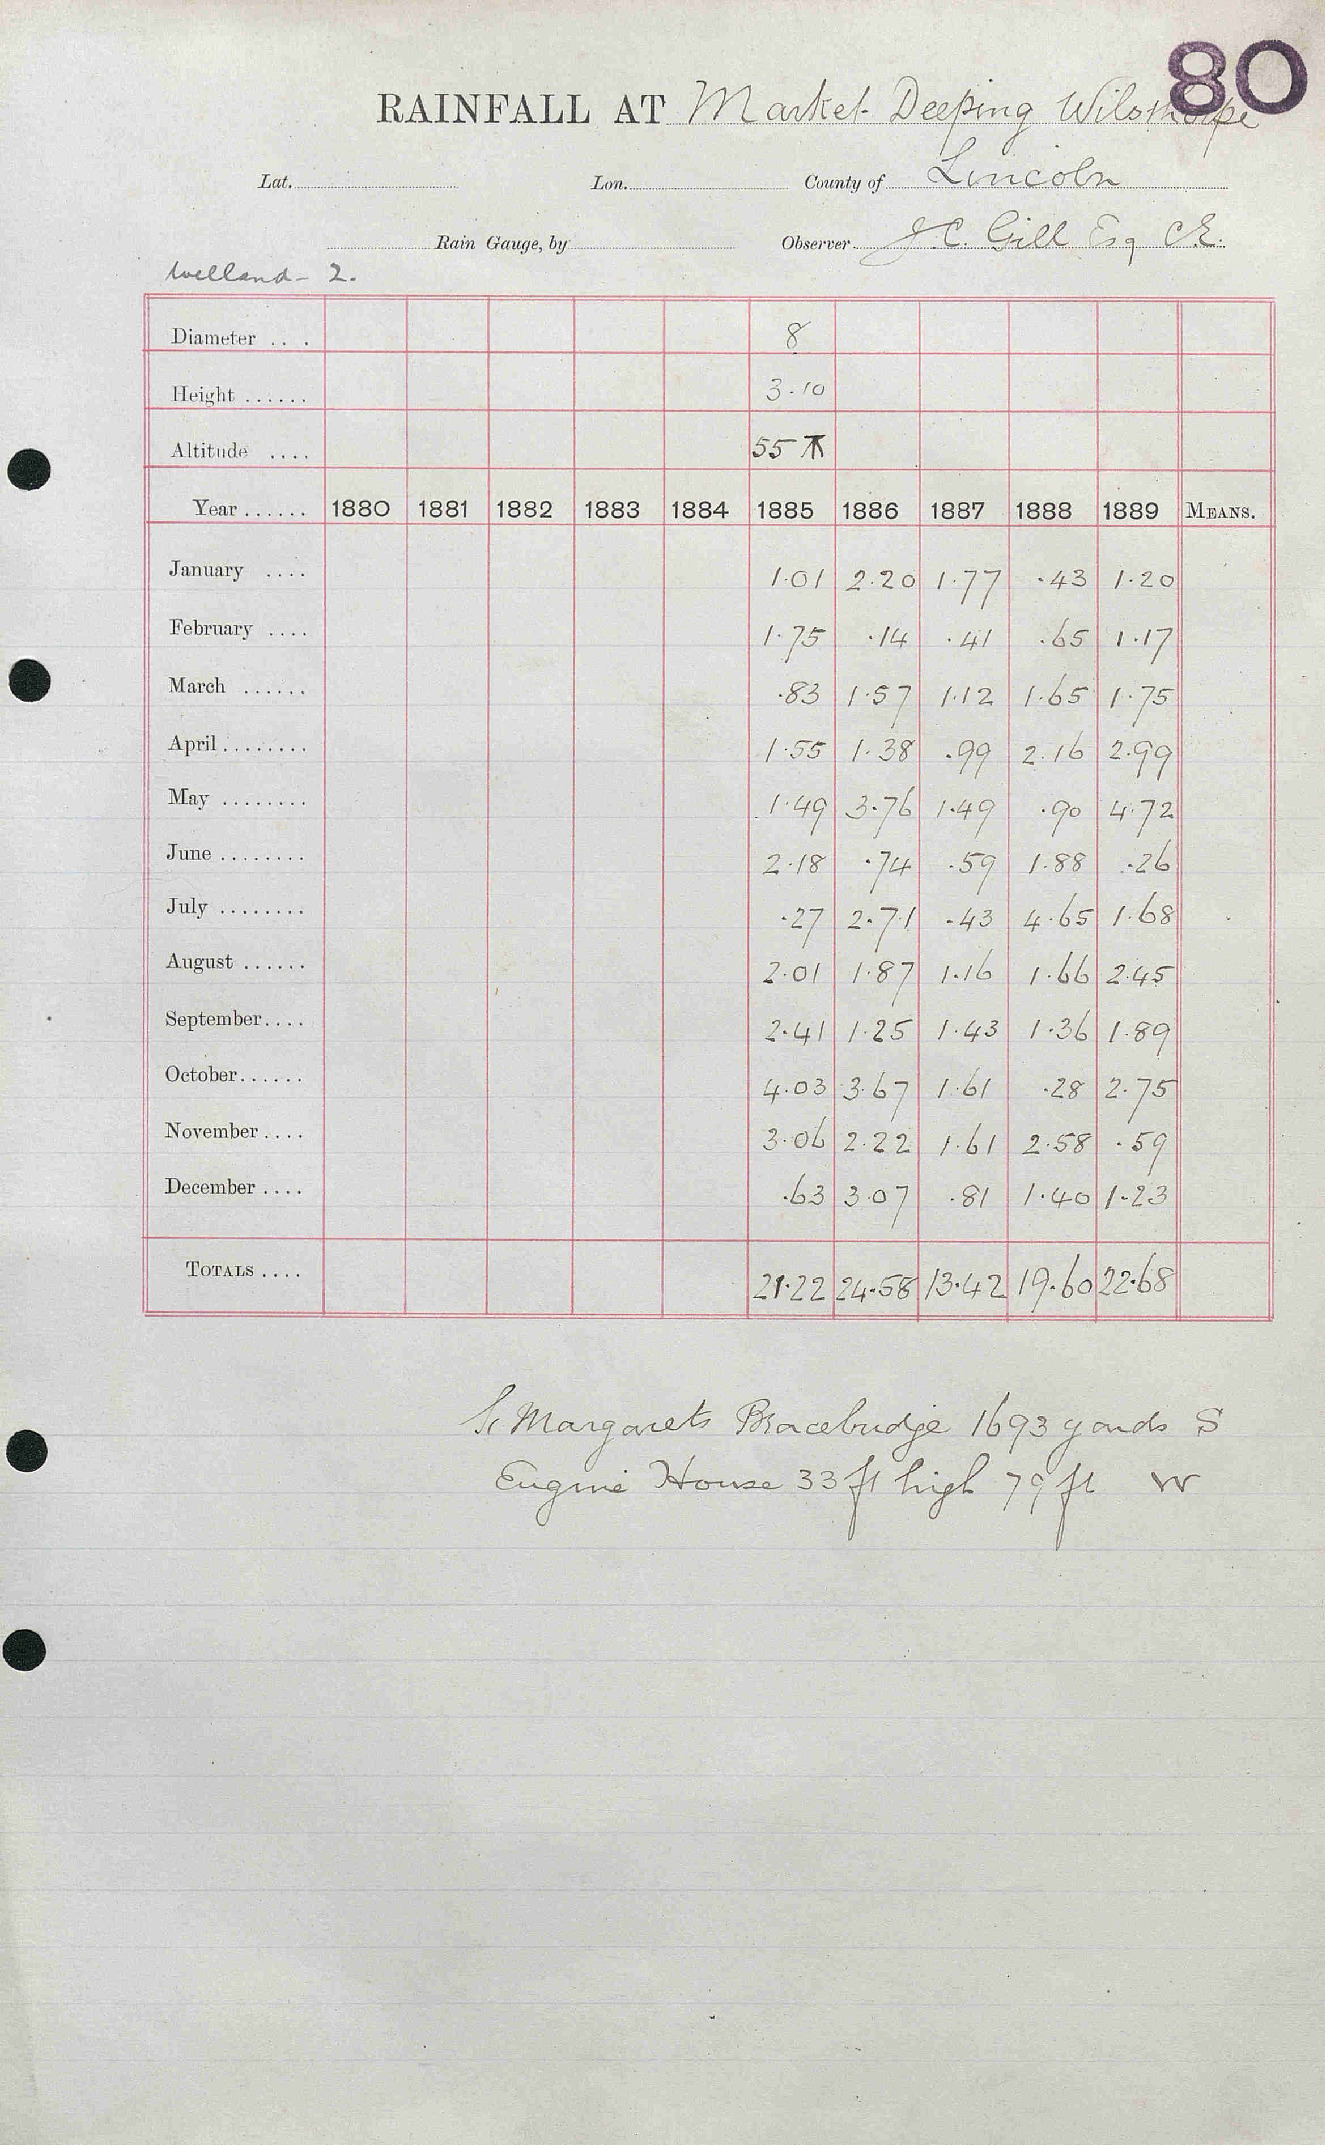 80
RAINFALL AT Market Deeping Wilsthorpe
Lat. Lon. County of Lincoln
Rain Gauge, by Observer. J.C. Gill Esq C.E.
Welland - 2.
Diameter ... 8
Height ...... 3.10
Altitude .... 55
Year ...... 1880 1881 1882 1883 1884 1885 1886 1887 1888 1889 MEANS.
January .... 1.01 2.20 1.77 .43 1.20
February .... 1.75 .14 .41 .65 1.17
March ...... .83 1.57 1.12 1.65 1.75
April ........ 1.55 1.38 .99 2.16 2.99
May ........ 1.49 3.76 1.49 .90 4.72
June ........ 2.18 .74 .59 1.88 .26
July ........ .27 2.71 .43 4.65 1.68
August ...... 2.01 1.87 1.16 1.66 2.45
September.... 2.41 1.25 1.43 1.36 1.89
October...... 4.03 3.67 1.61 .28 2.75
November .... 3.06 2.22 1.61 2.58 .59
December .... .63 3.07 .81 1.40 1.23
TOTALS .... 21.22 24.58 13.42 19.60 22.68
St Margarets Bracebudge 1693 yards S
Engine House 33 ft high 79 ft W